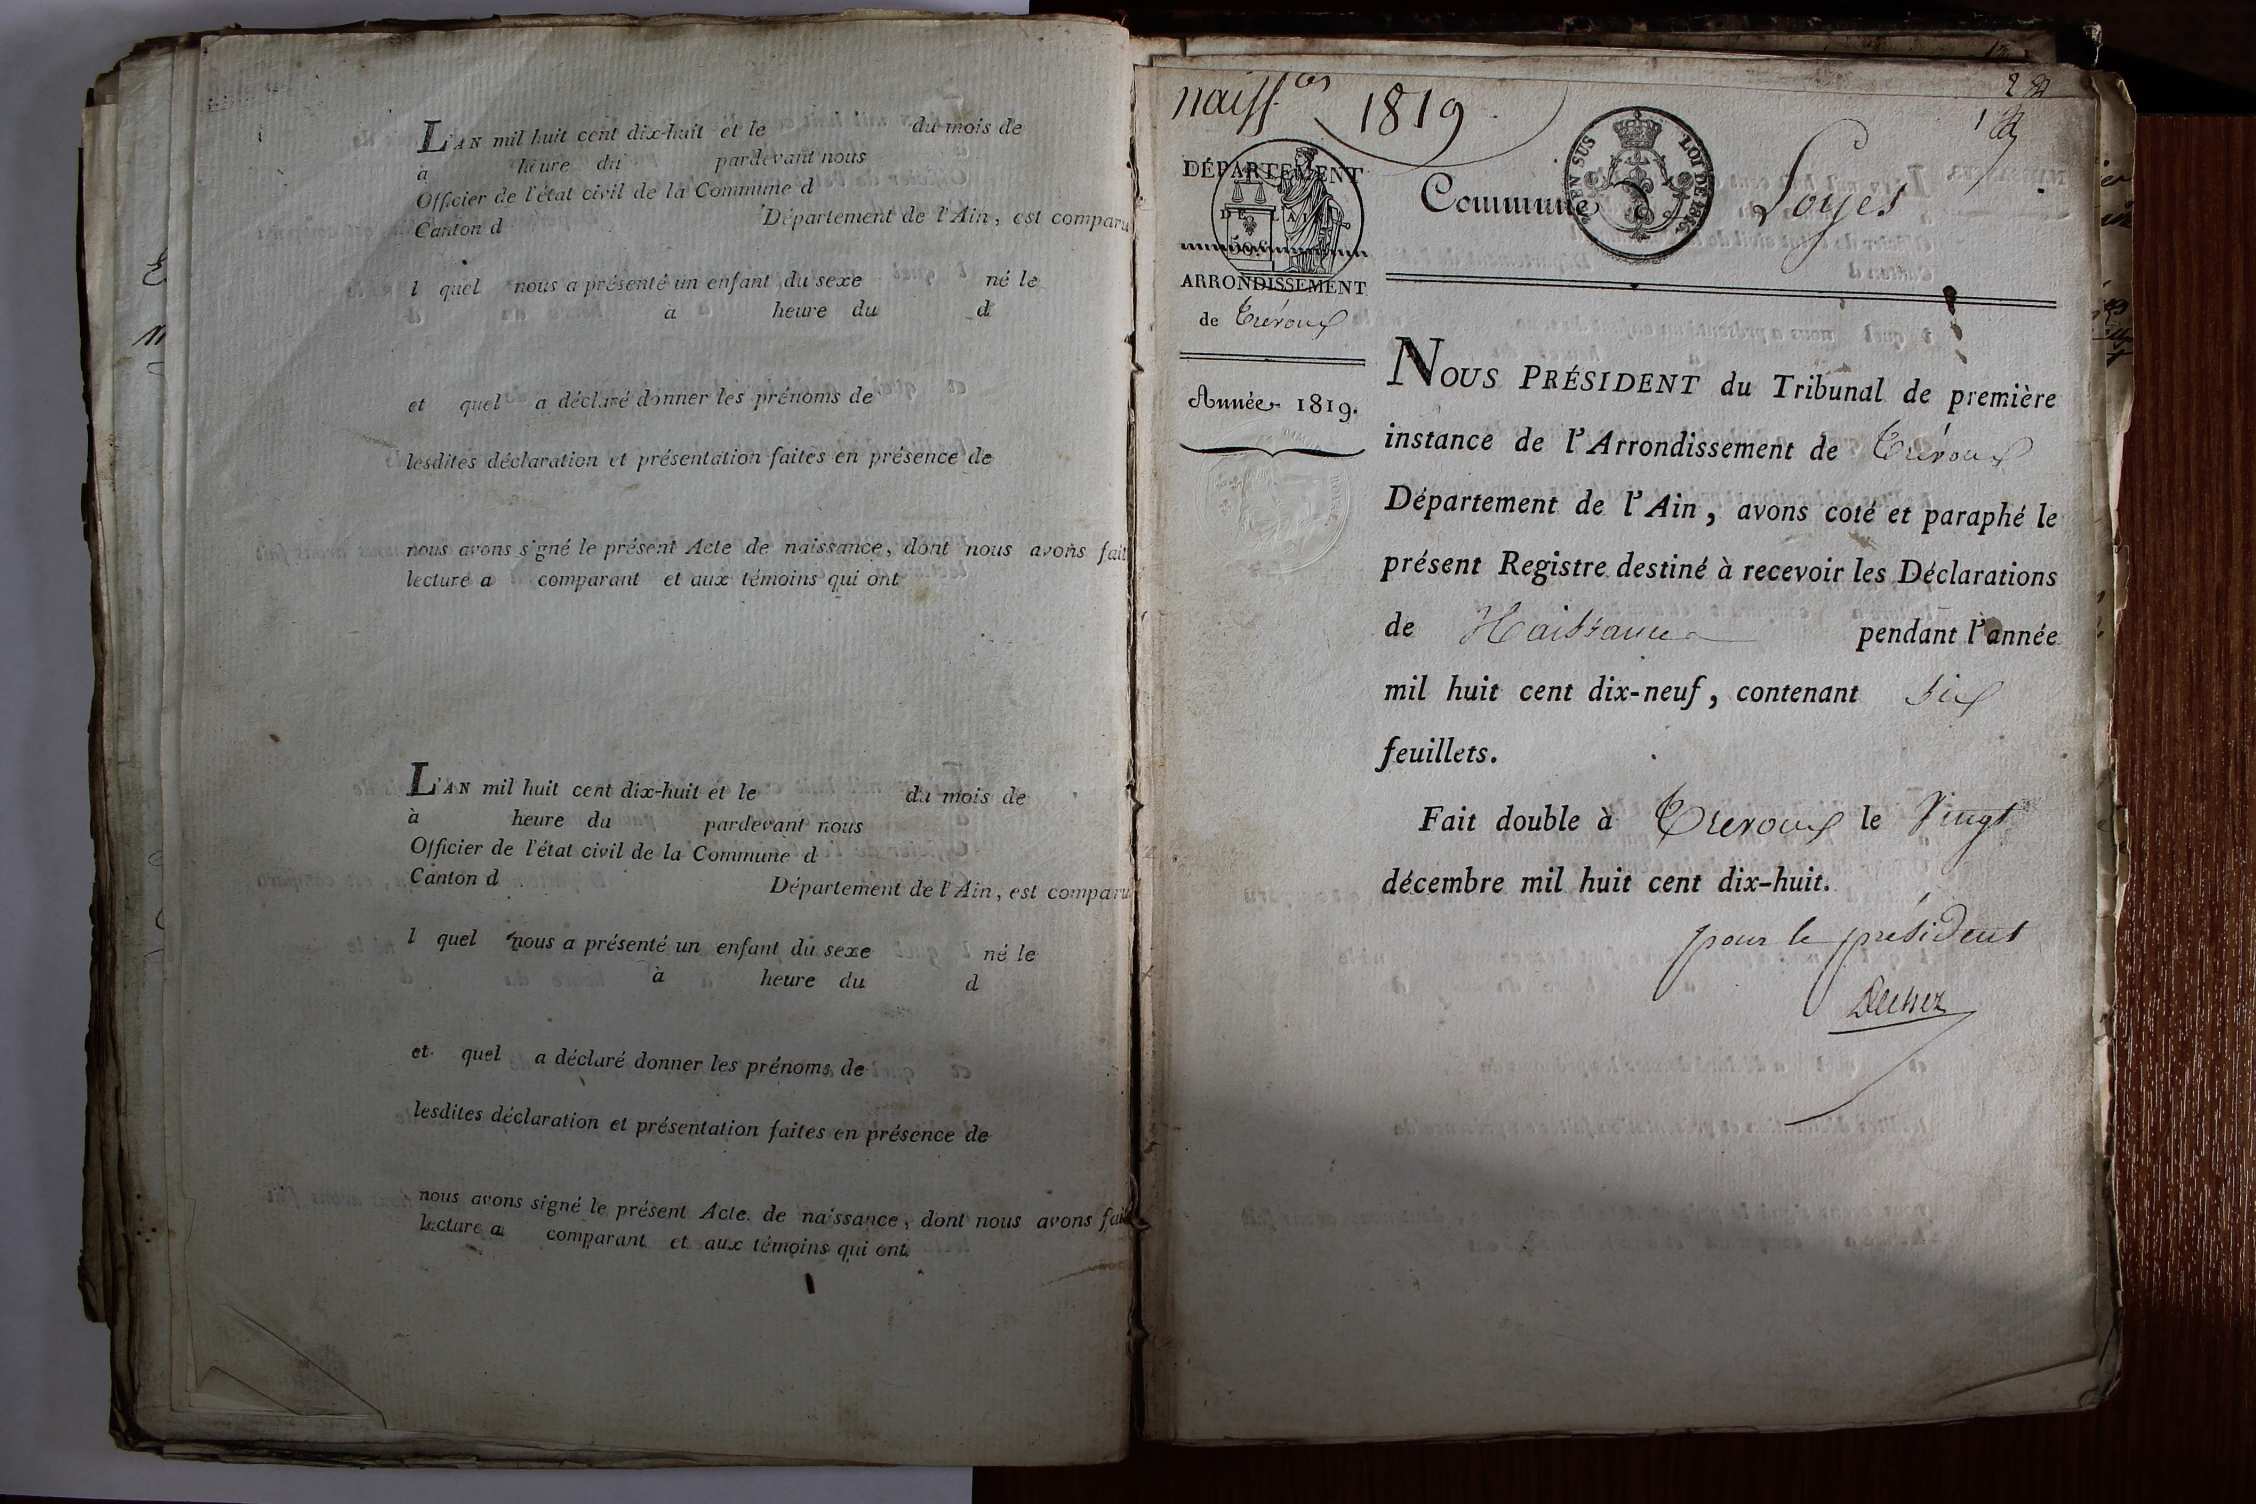 L'AN mil huit cent dix-huit et le du mois de
à heure du pardevant nous
Officier de l'état civil de la Commune d
Canton d Département de l'Ain, est comparu
l quel nous a présenté un enfant du sexe né le
à heure du d
et quel a déclaré donner les prénoms de
lesdites déclaration et présentation faites en présence de
nous avons signé le présent Acte de naissance, dont nous avons fait
lecture a comparant et aux témoins qui ont
L'AN mil huit cent dix-huit et le du mois de
à heure du pardevant nous
Officier de l'état civil de la Commune d
Canton d Département de l'Ain, est comparu
l quel nous a présenté un enfant du sexe né le
à heure du d
et quel a déclaré donner les prénoms de
lesdites déclaration et présentation faites en présence de
nous avons signé le présent Acte de naissance, dont nous avons fait
lecture a comparant et aux témoins qui ont
naiss.ces 1819
DÉPARTEMENT
DE L'AIN
ARRONDISSEMENT
de Trévoux
Année 1819.
EN SUS LOI DE 1816
Commune de Loyes
NOUS PRÉSIDENT du Tribunal de première
instance de l'Arrondissement de Trévoux
Département de l'Ain, avons coté et paraphé le
présent Registre destiné à recevoir les Déclarations
de Naissance pendant l'année
mil huit cent dix-neuf, contenant six
feuillets.
Fait double à Trevoux le Vingt
décembre mil huit cent dix-huit.
pour le président